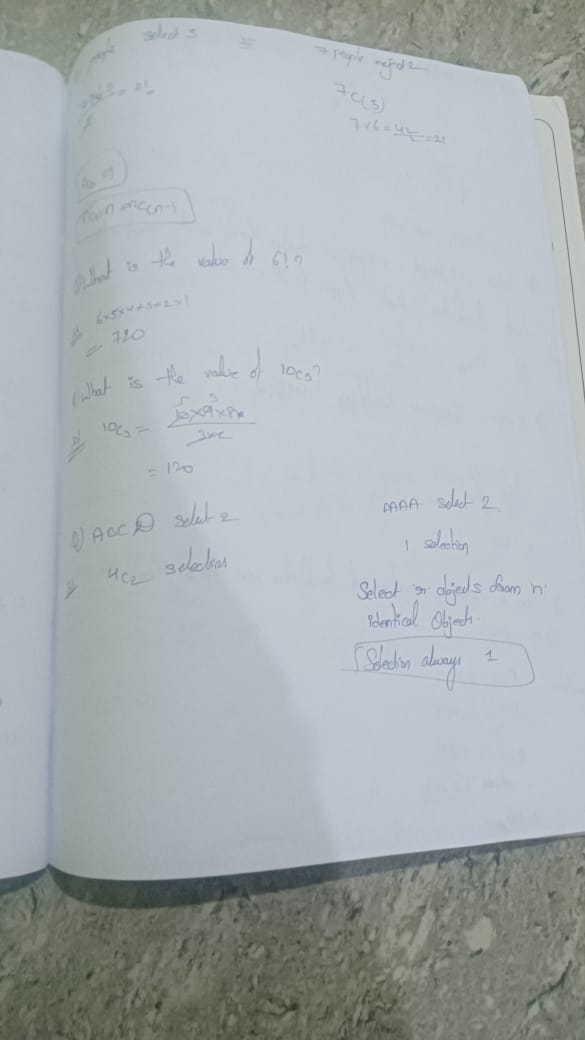 select 5 ≡ 7 people reject 2
= 21
7C(5)
7×6 = 42/2 = 21
Q) What is the value of 6!?
6×5×4×3×2×1
= 720
Q) What is the value of 10C3?
10C3 = 10×9×8
= 120
Q) ABCD select 2
4C2 selections
AAAA select 2
1 selection
Select r objects from n
identical Objects
Selection always 1